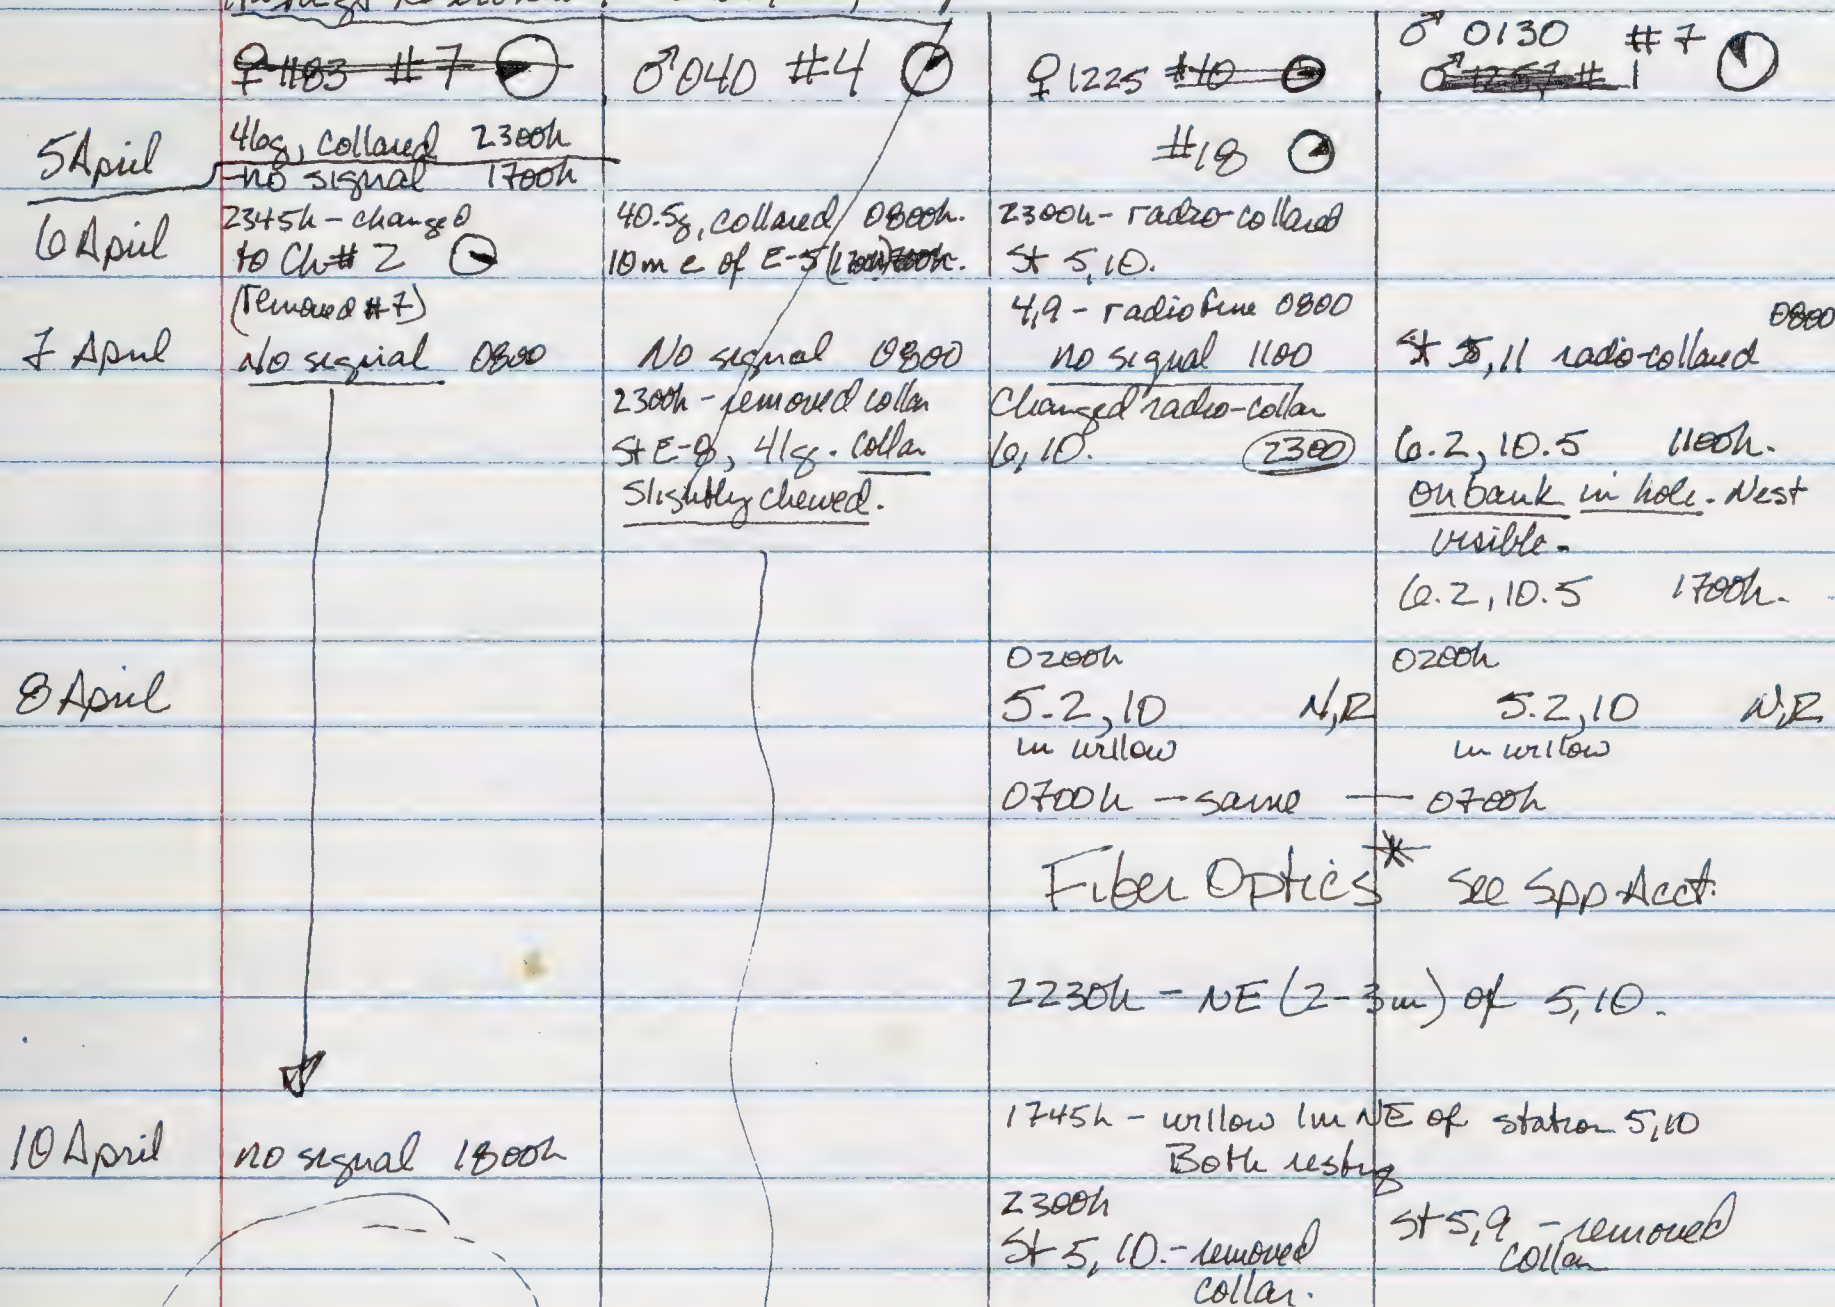 ♀ 1183 #7
♂ 040 #4
♀ 1225 #10
#18
♂ 0130 #7
♂ 1257 # 1
5 April
41.6g, collared 2300h
no signal 1700h
6 April
2345h - changed
to Ch# 2
(removed #7)
40.5g, collared 0800h.
10 m e of E-5
2300h - radio-collared
St 5,10.
7 April
No signal 0800
No signal 0800
2300h - removed collar
St E-8, 41g. collar
slightly chewed.
4,9 - radio fine 0800
no signal 1100
Changed radio-collar
6,10. 2300
0800
St 5,11 radio-collared
6.2, 10.5 1100h.
On bank in hole. Nest
visible.
6.2, 10.5 1700h.
8 April
0200h
5.2, 10 N,R
in willow
0700h - same — 0700h
0200h
5.2, 10 N,R
in willow
Fiber Optics* See Spp Acct.
2230h - NE (2-3m) of 5,10.
10 April
no signal 1800h
1745h - willow 1m NE of station 5,10
Both resting
2300h
St 5, 10. - removed
collar.
St 5,9 - removed
collar